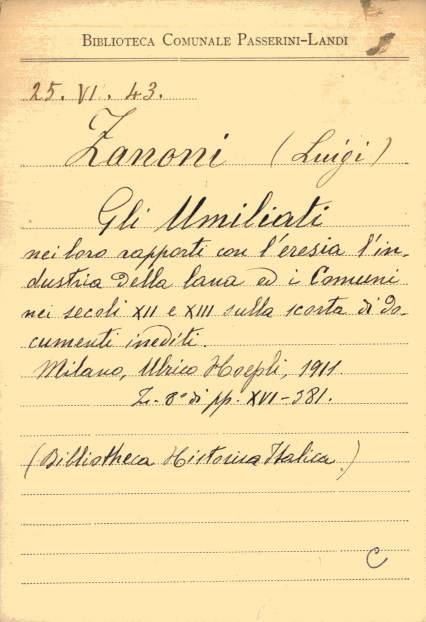 BIBLIOTECA COMUNALE PASSERINI-LANDI
25. VI. 43.
Zanoni (Luigi)
Gli Umiliati
nei loro rapporti con l'eresia l'in-
dustria della lana ed i Comuni
nei secoli XII e XIII sulla scorta di do-
cumenti inediti.
Milano, Ulrico Hoepli, 1911
in 8° di pp. XVI-381.
(Bibliotheca Historica Italica)
C